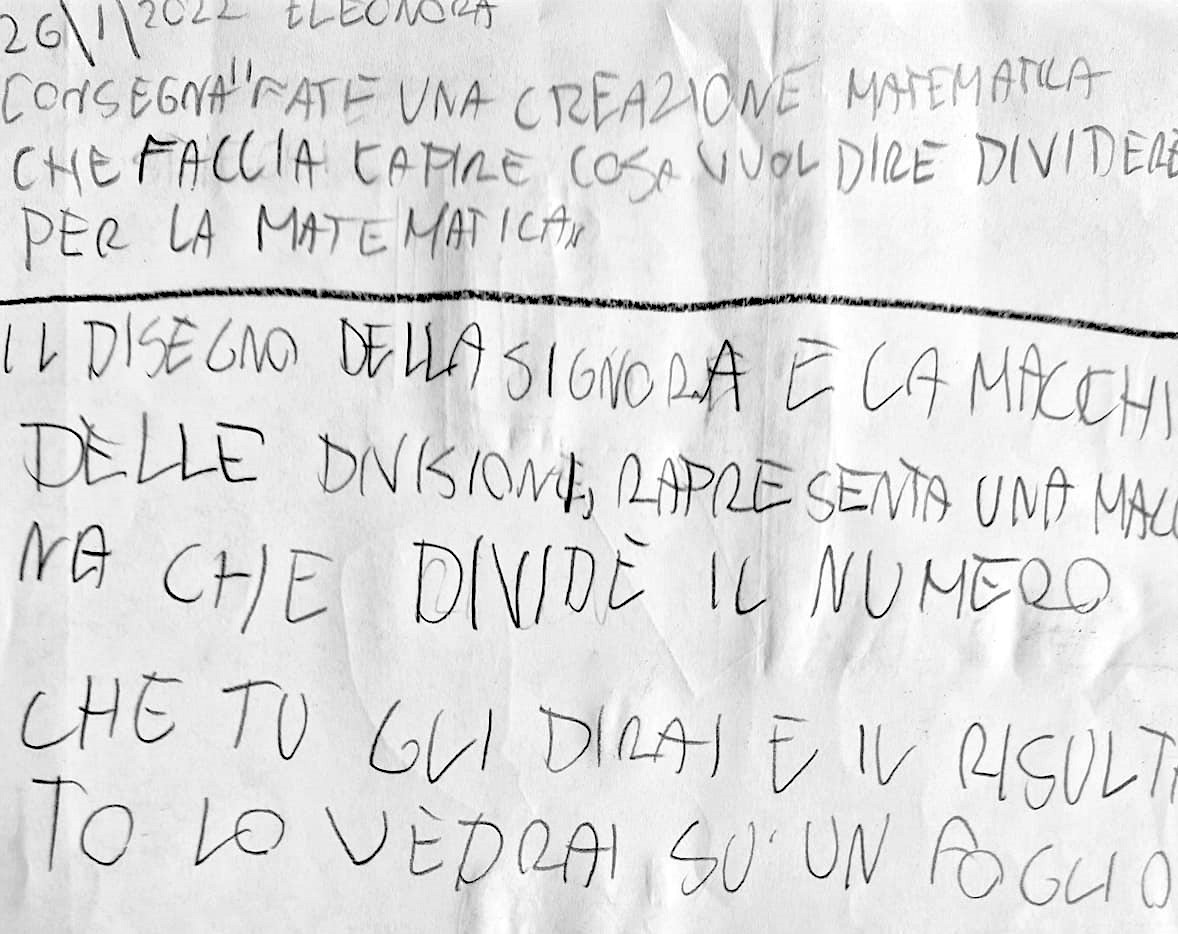 26\1\2022 ELEONORA
CONSEGNA "FATE UNA CREAZIONE MATEMATICA
CHE FACCIA CAPIRE COSA VUOL DIRE DIVIDERE
PER LA MATEMATICA"
IL DISEGNO DELLA SIGNORA E LA MACCHI
DELLE DIVISIONI, RAPRESENTA UNA MACC
NA CHE DIVIDE IL NUMERO
CHE TU GLI DIRAI E IL RISULTA
TO LO VEDRAI SU UN FOGLIO